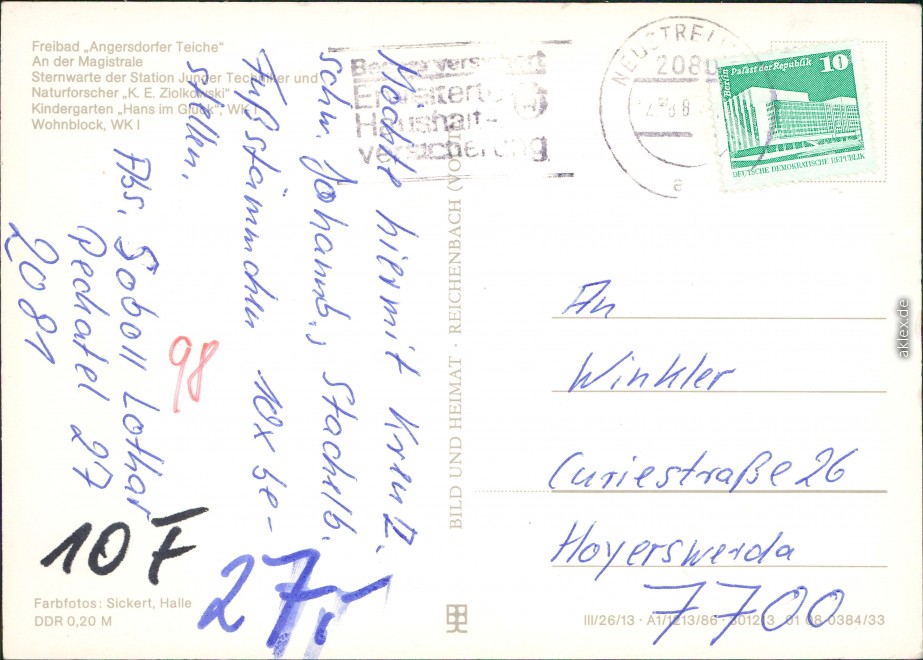 Freibad „Angersdorfer Teiche"
An der Magistrale
Sternwarte der Station Junger Techniker und
Naturforscher „K. E. Ziolkowski"
Kindergarten „Hans im Glück", WK I
Wohnblock, WK I
Möchte hiermit
schw. Johannb., Stachelb.
Fußstämmchen 10x be-
stellen.
Abs. Goboll Lothar
Peckatel 27
2081
98
10 F
27,-
Farbfotos: Sickert, Halle
DDR 0,20 M
BILD UND HEIMAT · REICHENBACH
Erweiterte
Haushalt-
versicherung
2080
a
Berlin Palast der Republik 10
DEUTSCHE DEMOKRATISCHE REPUBLIK
An
Winkler
Curiestraße 26
Hoyerswerda
7700
III/26/13 · A1/1213/86 01 08 0384/33
aklex.de